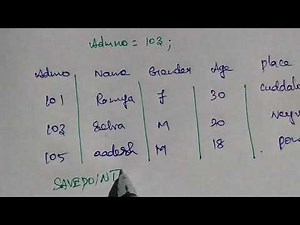 Admno = 103 ;
Admno Name Gender Age place
101 Ramya F 30 cuddalo
103 Selva M 20 Neyv
105 aadesh M 18
SAVEPOINT